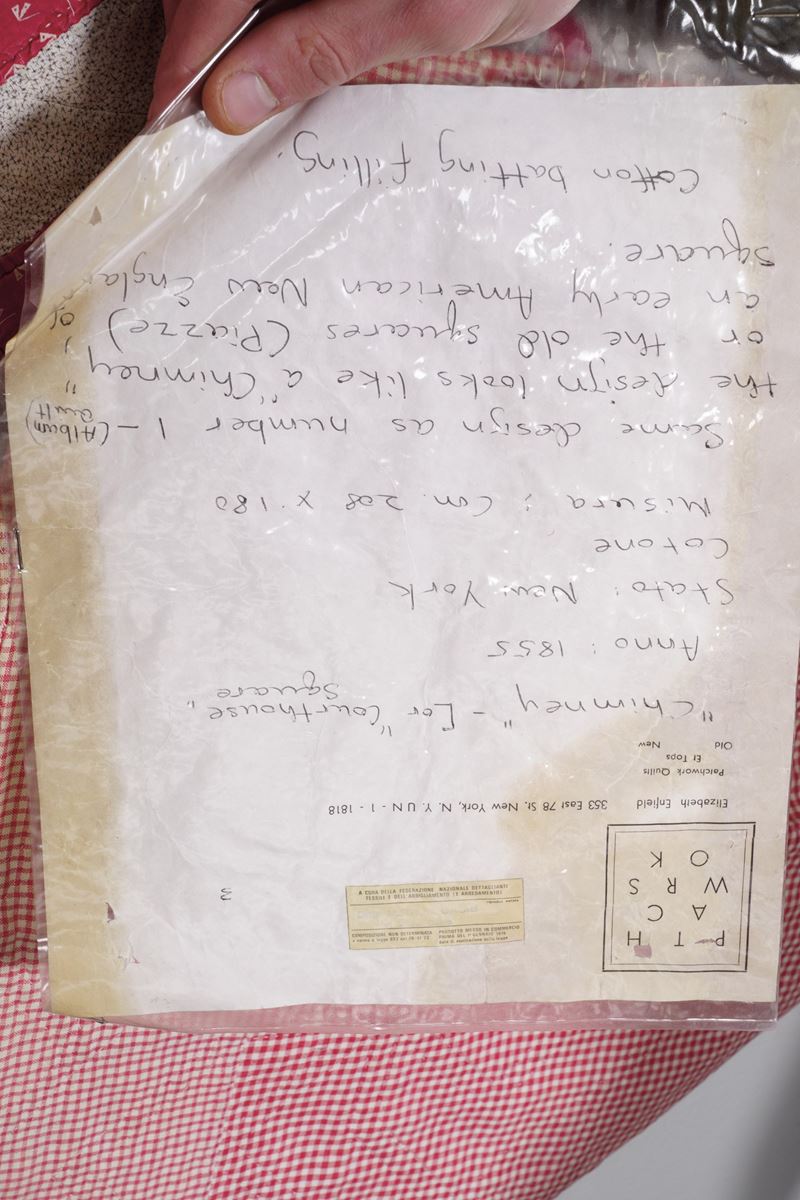 P A T C H
W O R K S
Elizabeth Enfield 353 East 78 St. New York, N. Y. UN - 1 - 1818
Patchwork Quilts
Et Tops
Old New
3
A CURA DELLA FEDERAZIONE NAZIONALE DETTAGLIANTI
TESSILI E DELL'ABBIGLIAMENTO (E ARREDAMENTO)
COMPOSIZIONE NON DETERMINATA
PRODOTTO MESSO IN COMMERCIO
"Chimney" - [or "Courthouse
Square"
Anno : 1855
Stato : New York
Cotone
Misura : Cm. 208 x 180
Same design as number 1 - (Album
quilt)
the design looks like a "Chimney",
or the old squares (Piazze) of
an early American New Englan
square.
Cotton batting filling.